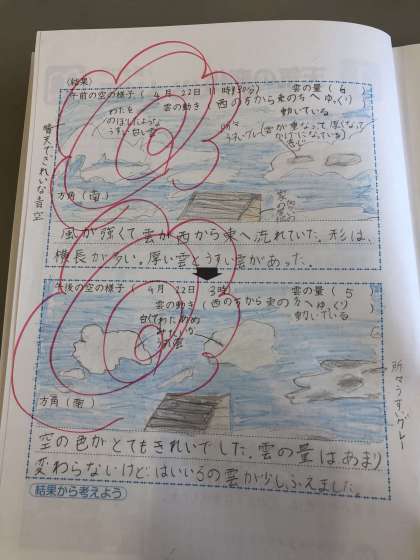 〈結果〉
午前の空の様子( 4月 22日 11時30分)
雲の量( 6 )
雲の動き(西の方から東の方へゆっくり
動いている
わたを
のばしたような
うすい白い雲
所々
うすいグレー(雲が重なって、厚くなって
かげになっている
感じ
晴天できれいな青空
方角(南)
風が強くて雲が西から東へ流れていた。形は、
横長が多い。厚い雲とうすい雲があった。
午後の空の様子( 4月 22日 3時 )
雲の量( 5 )
雲の動き(西の方から東の方へゆっくり
動いている
白くてわたあめ
みたいな
雲
所々うすいグレー
方角(南)
空の色がとてもきれいでした。雲の量はあまり
変わらないけど、はいいろの雲が少しふえました。
結果から考えよう